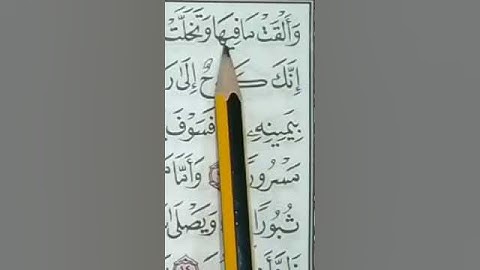 وَأَلْقَتْ مَا فِيهَا وَتَخَلَّتْ
إِنَّكَ كَادِحٌ إِلَىٰ
بِيَمِينِهِ فَسَوْفَ
مَسْرُورًا وَأَمَّا
ثُبُورًا وَيَصْلَىٰ